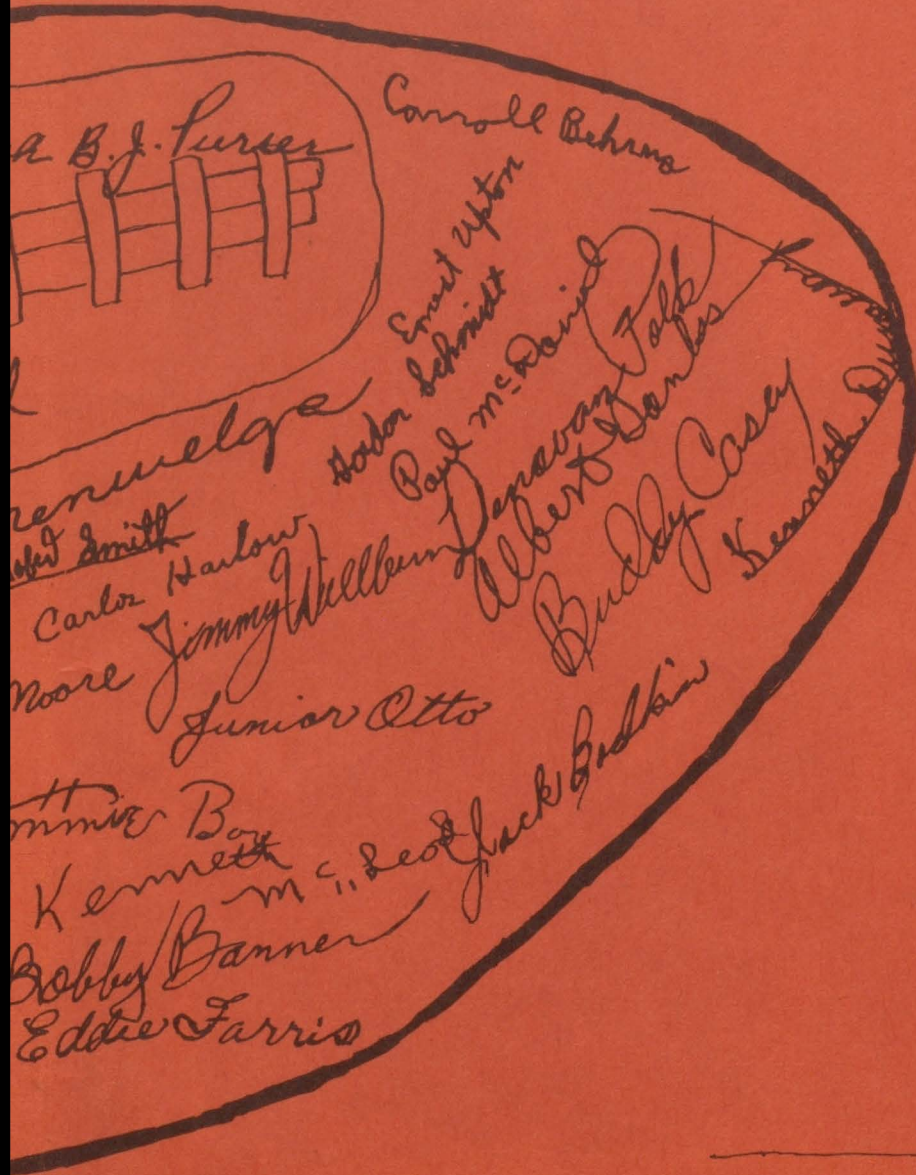 B.J. Purser
Carroll Behrens
Ernest Upton
Schmidt
Paul McDavid
Donavan Polk
Albert
Buddy Casey
Kenneth
Smith
Carlos Harlow
Moore
Jimmy Willburn
Junior Otto
Jack Bodkin
Boy
Kenneth McLeod
Bobby Banner
Eddie Farris